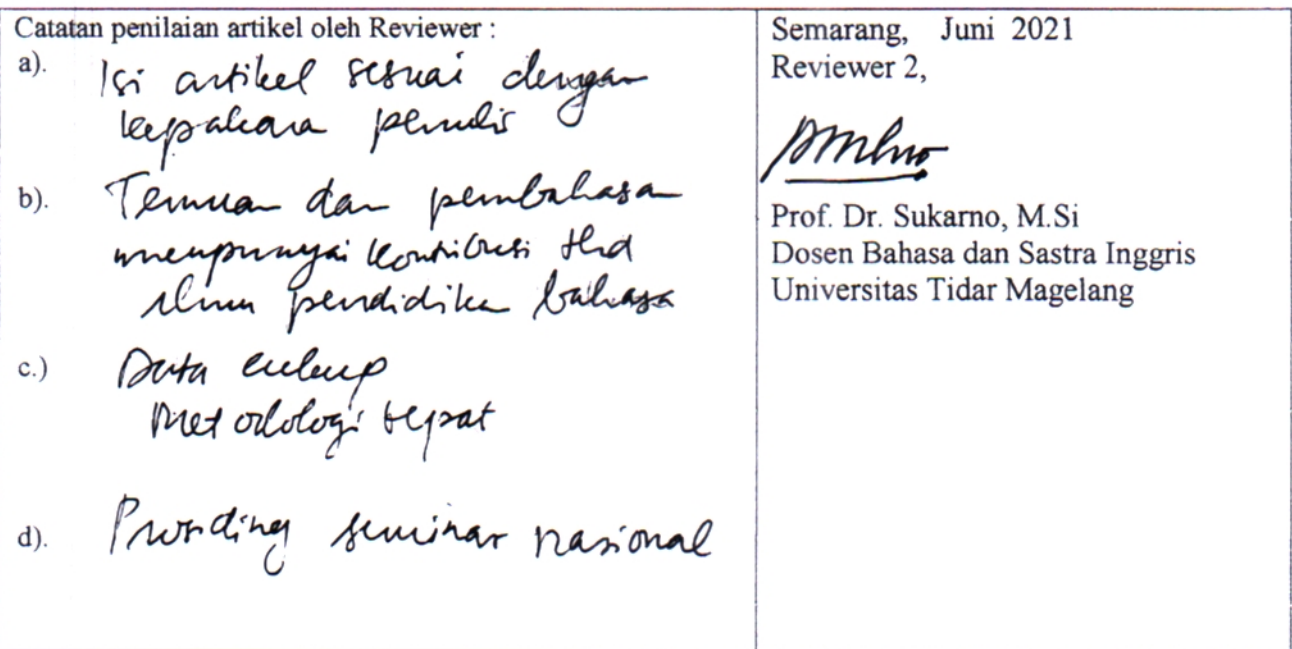 Catatan penilaian artikel oleh Reviewer :
a). Isi artikel sesuai dengan
kepakaran penulis
b). Temuan dan pembahasan
mempunyai kontribusi thd
ilmu pendidikan bahasa
c.) Data cukup
Metodologi tepat
d). Prosiding seminar nasional
Semarang, Juni 2021
Reviewer 2,
Prof. Dr. Sukarno, M.Si
Dosen Bahasa dan Sastra Inggris
Universitas Tidar Magelang